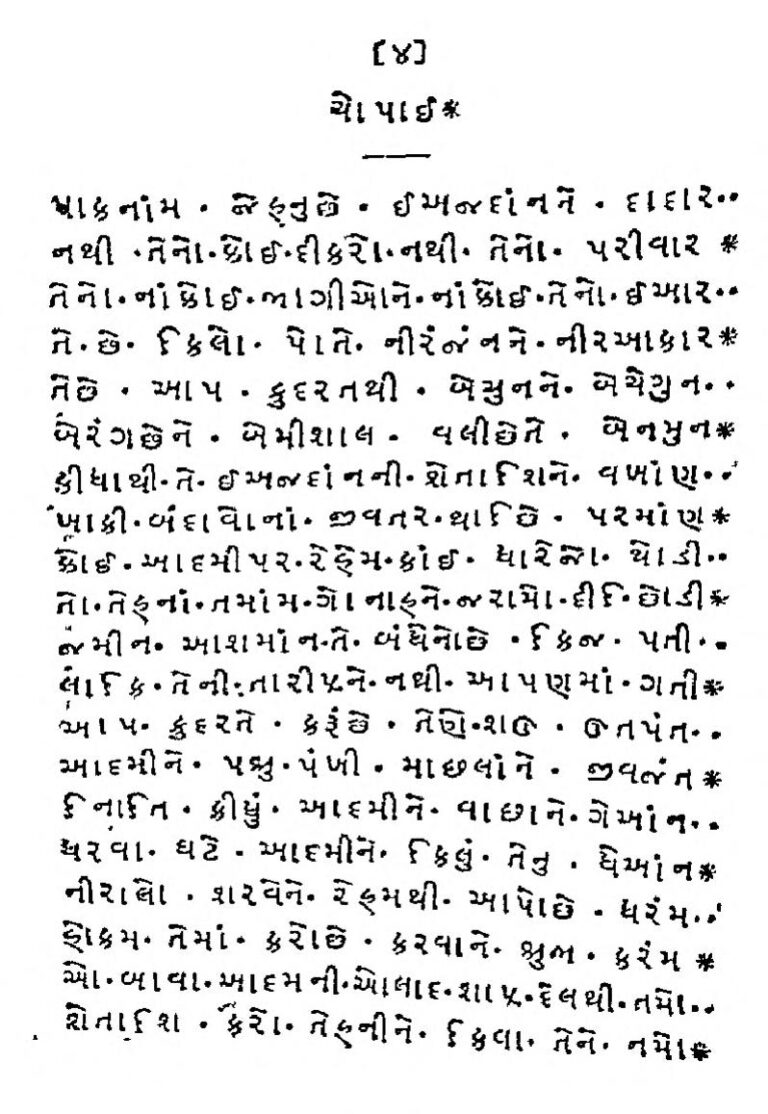 [૪]
ચોપાઈ*
પાકનાંમ · જેહનુછે · ઈઅજદાંનને · દાદાર··
નથી · તેનો · કોઈ · દીકરો · નથી · તેનો · પરીવાર *
તેનો · નાંકોઈ · ભાગીઓને · નાંકોઈ · તેનો · ઈઆર··
તે · છે · એકલો · પોતે · નીરંજંનને · નીરઆકાર*
તેછે · આપ · કુદરતથી · બેચુનને · બેચેગુન··
બેરંગછેને · બેમીશાલ · વલીછેતે · બેનમુન*
કીધાથી · તે · ઈઅજદાંનની · શેતાએશને · વખાંણ··
ખાકી · બંદાવોનાં · જીવતર · થાએછે · પરમાંણ*
કોઈ · આદમીપર · રેહેમ · કાંઈ · ધારેજો · થોડી··
તો · તેહનાં · તમાંમ · ગોનાહને · જરામો · દીએ · છોડી*
જમીન · આશમાંન · તે · બંધેનોછે · એકજ · પતી··
લાએક · તેની · તારીફને · નથી · આપણમાં · ગતી*
આપ · કુદરતે · કરૂંછે · તેણે · શઉ · ઊતપંત··
આદમીને · પશુ · પંખી · માછલાંને · જીવજંત*
એનાએત · કીધું · આદમીને · વાછાને · ગેઆંન··
ધરવા · ઘટે · આદમીને · એકલું · તેનુ · ધેઆંન*
નીરાલો · શરવેને · રેહમથી · આપોછે · ધરંમ··
હોકમ · તેમાં · કરોછે · કરવાને · શુભ · કરંમ *
ઓ · બાવા · આદમની · ઓલાદ · શાફ · દેલથી · તમો··
શેતાએશ · કરો · તેહનીને · એકવા · તેને · નમો*